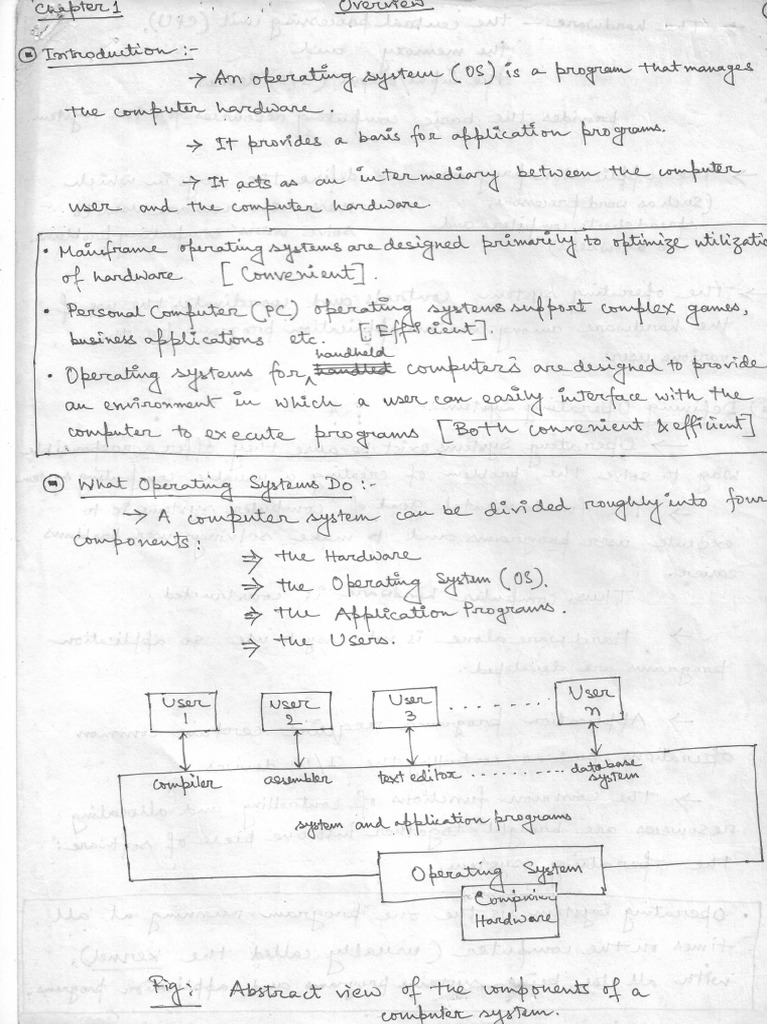 Chapter 1
Overview
Introduction :-
→ An operating system (OS) is a program that manages
the computer hardware.
→ It provides a basis for application programs.
→ It acts as an intermediary between the computer
user and the computer hardware.
• Mainframe operating systems are designed primarily to optimize utilizati
of hardware [Convenient].
• Personal Computer (PC) operating systems support complex games,
business applications etc. [Efficient].
handheld
• Operating systems for ^ handled computers are designed to provide
an environment in which a user can easily interface with the
computer to execute programs [Both convenient & efficient]
What Operating Systems Do :-
→ A computer system can be divided roughly into four
components:
⇒ the Hardware
⇒ the Operating System (OS).
⇒ the Application Programs.
⇒ the Users.
User 1 User 2 User 3 ........ User n
compiler assembler text editor .......... database system
system and application programs
Operating System
Computer
Hardware
Fig: Abstract view of the components of a
computer system.